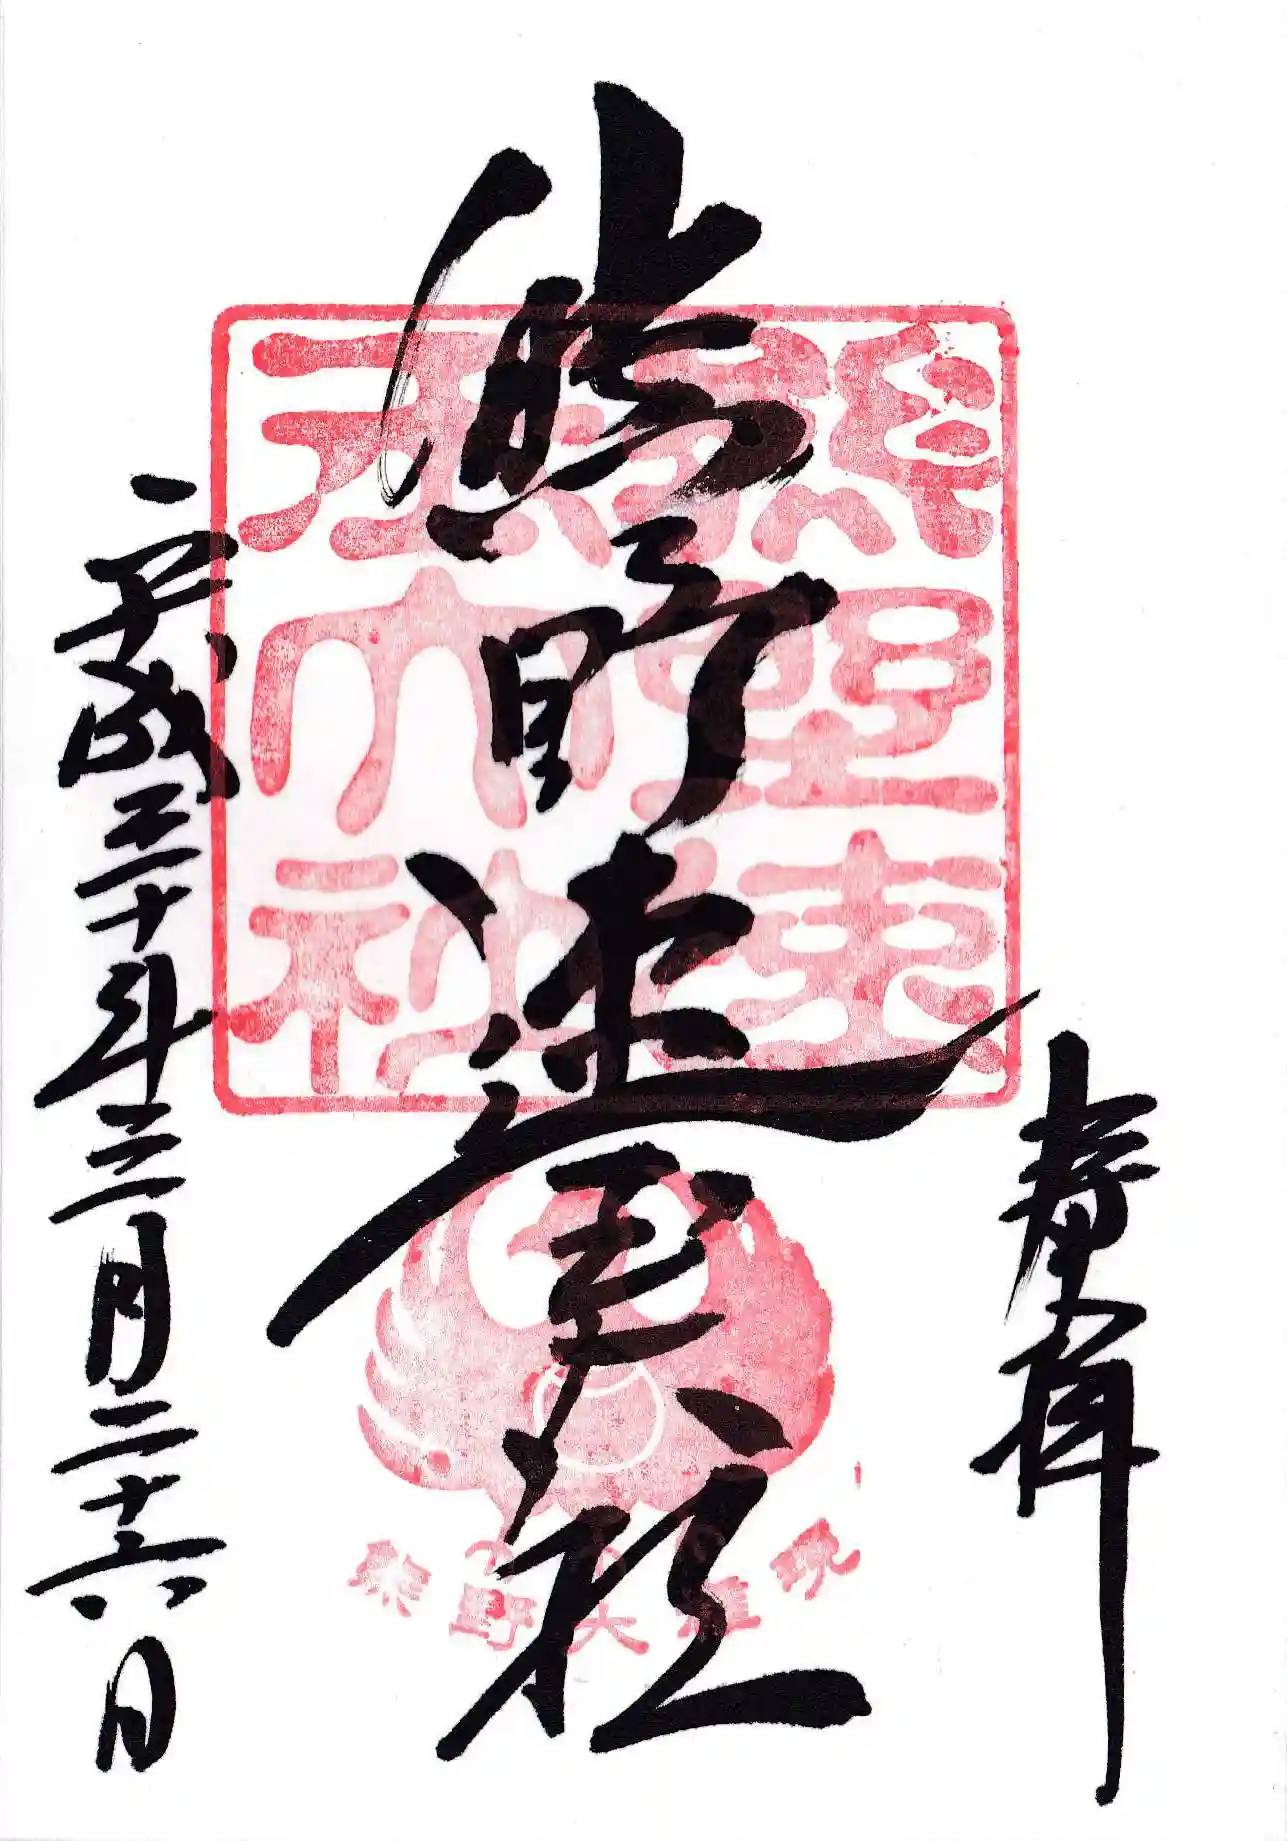 奉拝
熊野速玉社
熊野速
玉大社
熊野大権現
平成三十年三月二十六日